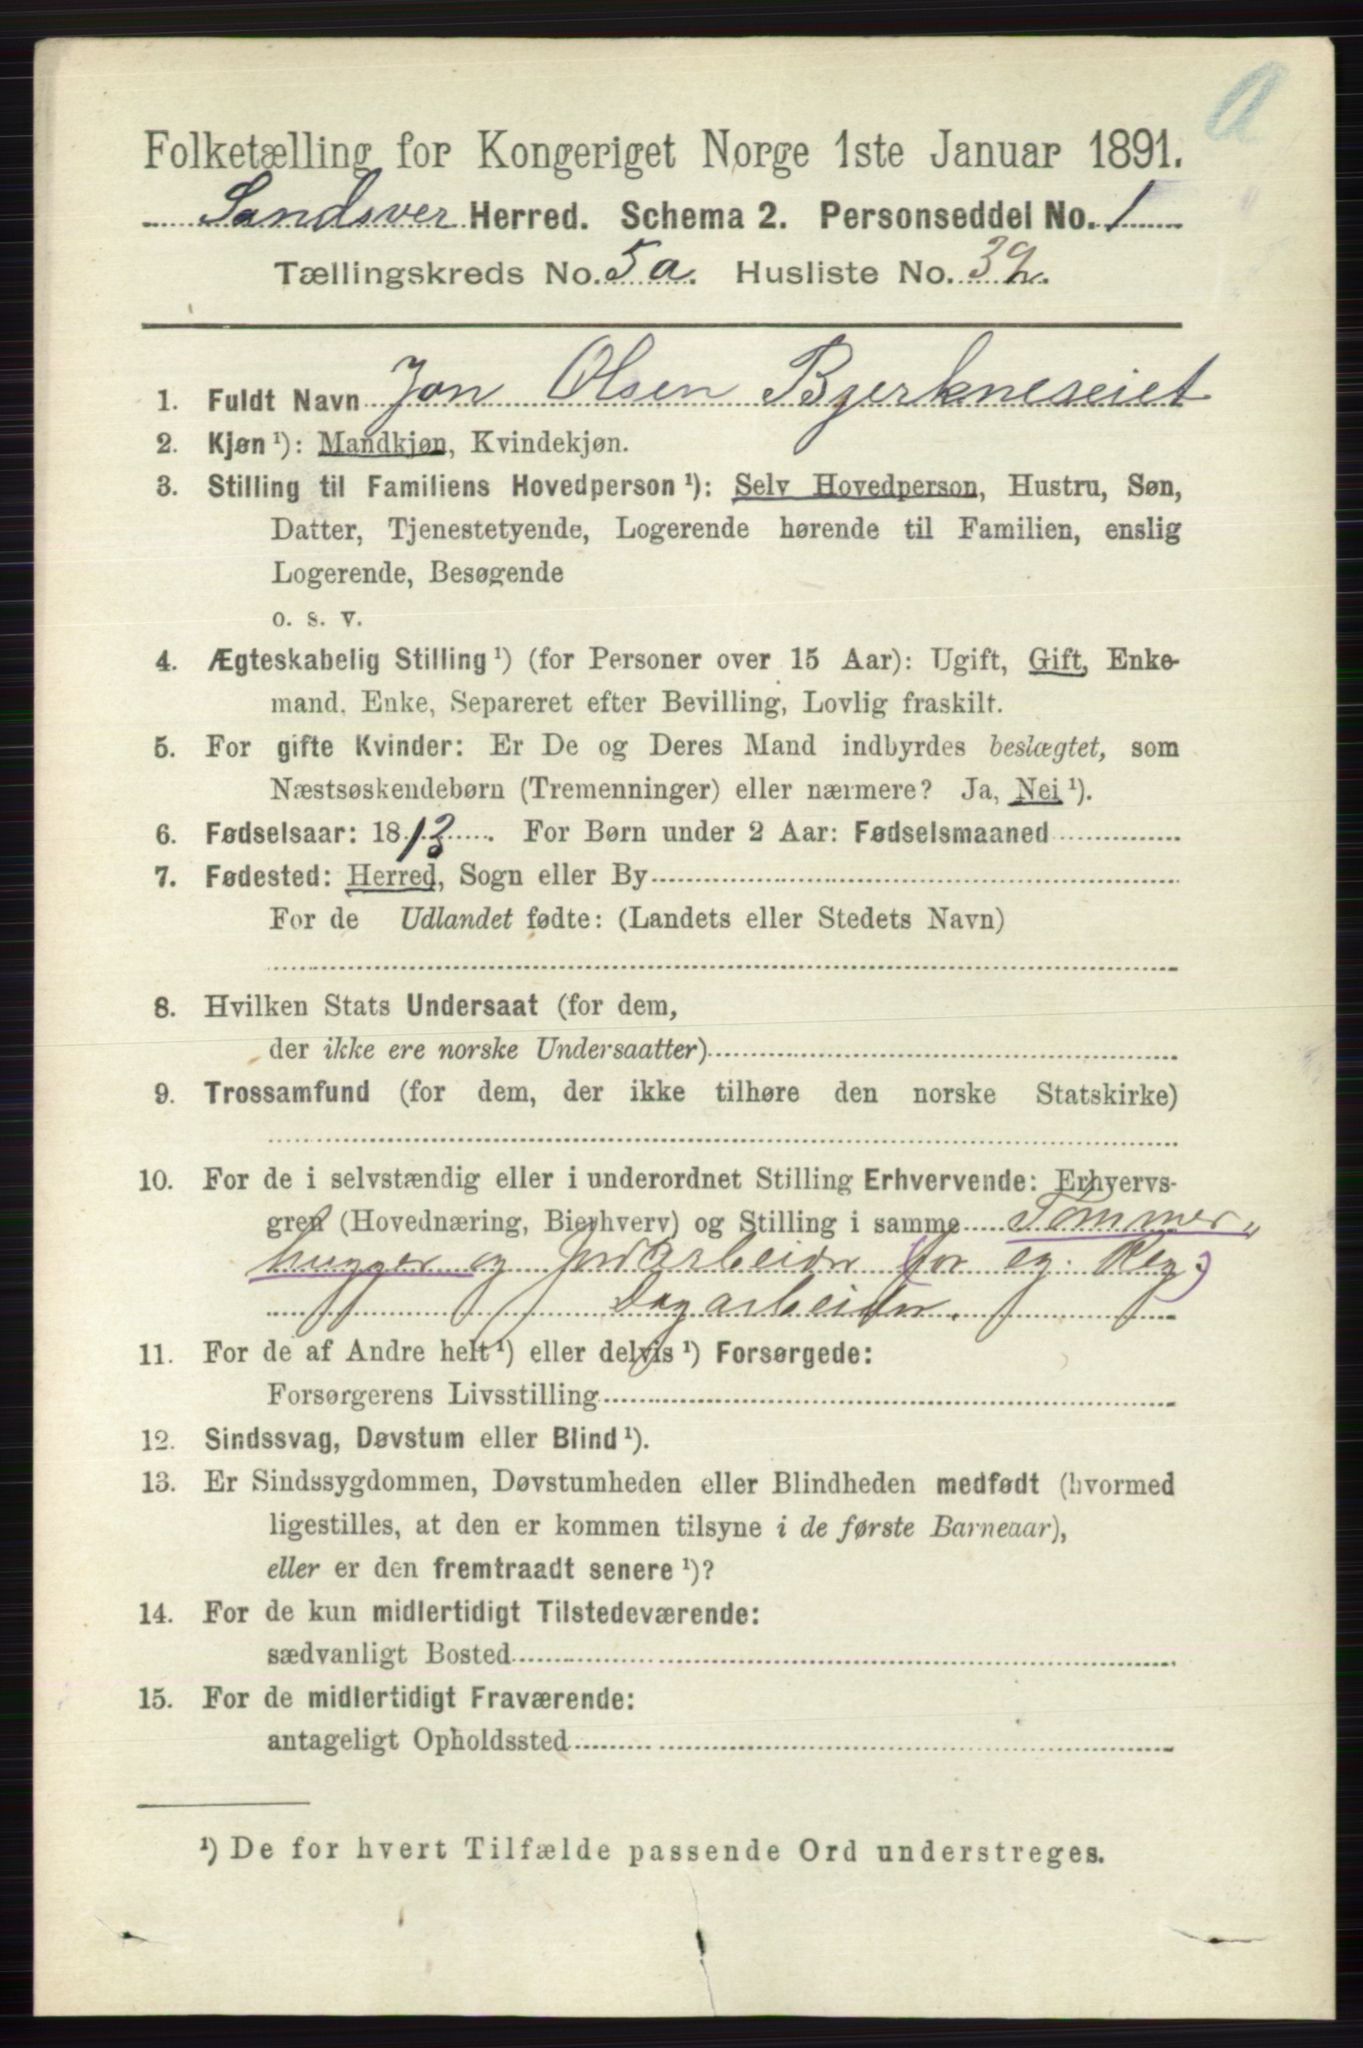 a
Folketælling for Kongeriget Norge 1ste Januar 1891.
Sandsver Herred. Schema 2. Personseddel No. 1
Tællingskreds No. 5 a. Husliste No. 39.
1. Fuldt Navn Jon Olsen Bjerkneseiet
2. Kjøn ¹): Mandkjøn, Kvindekjøn.
3. Stilling til Familiens Hovedperson ¹): Selv Hovedperson, Hustru, Søn,
Datter, Tjenestetyende, Logerende hørende til Familien, enslig
Logerende, Besøgende
o. s. v.
4. Ægteskabelig Stilling ¹) (for Personer over 15 Aar): Ugift, Gift, Enke-
mand, Enke, Separeret efter Bevilling, Lovlig fraskilt.
5. For gifte Kvinder: Er De og Deres Mand indbyrdes beslægtet, som
Næstsøskendebørn (Tremenninger) eller nærmere? Ja, Nei ¹).
6. Fødselsaar: 1813. For Børn under 2 Aar: Fødselsmaaned
7. Fødested: Herred, Sogn eller By
For de Udlandet fødte: (Landets eller Stedets Navn)
8. Hvilken Stats Undersaat (for dem,
der ikke ere norske Undersaatter)
9. Trossamfund (for dem, der ikke tilhøre den norske Statskirke)
10. For de i selvstændig eller i underordnet Stilling Erhvervende: Erhvervs-
gren (Hovednæring, Bierhverv) og Stilling i samme Tømmer„
hugger og Jordarbeider (for eg. Reg.)
Dagarbeider.
11. For de af Andre helt ¹) eller delvis ¹) Forsørgede:
Forsørgerens Livsstilling
12. Sindssvag, Døvstum eller Blind ¹).
13. Er Sindssygdommen, Døvstumheden eller Blindheden medfødt (hvormed
ligestilles, at den er kommen tilsyne i de første Barneaar),
eller er den fremtraadt senere ¹)?
14. For de kun midlertidigt Tilstedeværende:
sædvanligt Bosted
15. For de midlertidigt Fraværende:
antageligt Opholdssted
¹) De for hvert Tilfælde passende Ord understreges.